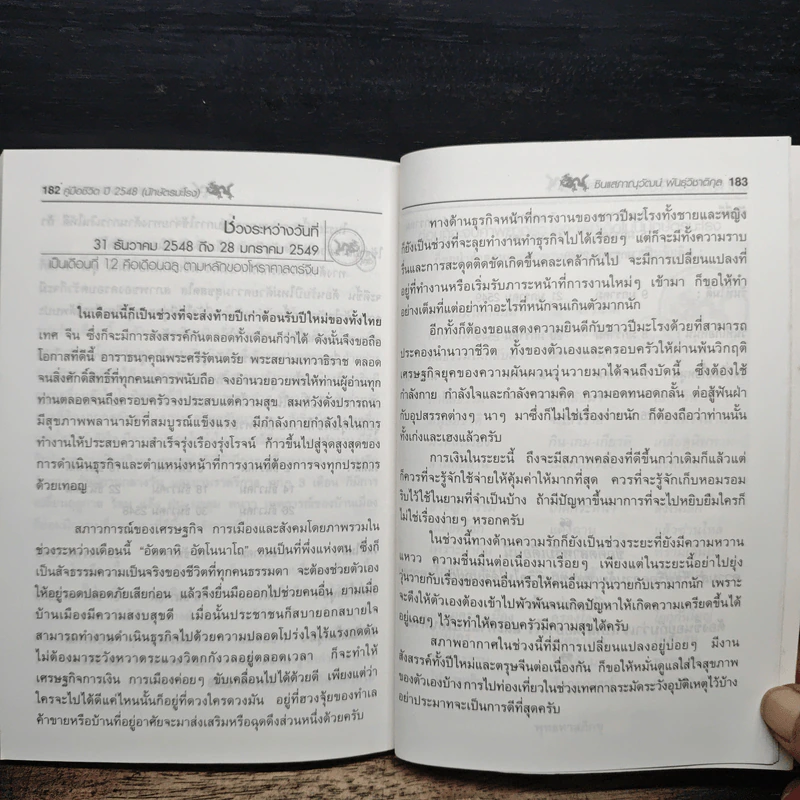 182 คู่มือชีวิต ปี 2548 (นักษัตรมะโรง)
ช่วงระหว่างวันที่
31 ธันวาคม 2548 ถึง 28 มกราคม 2549
เป็นเดือนที่ 12 คือเดือนฉลู ตามหลักของโหราศาสตร์จีน
ในเดือนนี้ก็เป็นช่วงที่จะส่งท้ายปีเก่าต้อนรับปีใหม่ของทั้งไทย
เทศ จีน ซึ่งก็จะมีการสังสรรค์กันตลอดทั้งเดือนก็ว่าได้ ดังนั้นจึงขอถือ
โอกาสที่ดีนี้ อาราธนาคุณพระศรีรัตนตรัย พระสยามเทวาธิราช ตลอด
จนสิ่งศักดิ์สิทธิ์ที่ทุกคนเคารพนับถือ จงอำนวยอวยพรให้ท่านผู้อ่านทุก
ท่านตลอดจนถึงครอบครัวจงประสบแต่ความสุข สมหวังดั่งปรารถนา
มีสุขภาพพลานามัยที่สมบูรณ์แข็งแรง มีกำลังกายกำลังใจในการ
ทำงานให้ประสบความสำเร็จรุ่งเรืองรุ่งโรจน์ ก้าวขึ้นไปสู่จุดสูงสุดของ
การดำเนินธุรกิจและตำแหน่งหน้าที่การงานที่ต้องการจงทุกประการ
ด้วยเทอญ
สภาวการณ์ของเศรษฐกิจ การเมืองและสังคมโดยภาพรวมใน
ช่วงระหว่างเดือนนี้ "อัตตาหิ อัตโนนาโถ" ตนเป็นที่พึ่งแห่งตน ซึ่งก็
เป็นสัจธรรมความเป็นจริงของชีวิตที่ทุกคนธรรมดา จะต้องช่วยตัวเอง
ให้อยู่รอดปลอดภัยเสียก่อน แล้วจึงยื่นมือออกไปช่วยคนอื่น ยามเมื่อ
บ้านเมืองมีความสงบสุขดี เมื่อนั้นประชาชนก็สบายอกสบายใจ
สามารถทำงานดำเนินธุรกิจไปด้วยความปลอดโปร่งใจไร้แรงกดดัน
ไม่ต้องมาระวังหวาดระแวงวิตกกังวลอยู่ตลอดเวลา ก็จะทำให้
เศรษฐกิจการเงิน การเมืองค่อยๆ ขับเคลื่อนไปได้ด้วยดี เพียงแต่ว่า
ใครจะไปได้ดีแค่ไหนนั้นก็อยู่ที่ดวงใครดวงมัน อยู่ที่ฮวงจุ้ยของทำเล
ค้าขายหรือบ้านที่อยู่อาศัยจะมาส่งเสริมหรือฉุดดึงส่วนหนึ่งด้วยครับ
ซินแสภาณุวัฒน์ พันธุ์วิชาติกุล 183
ทางด้านธุรกิจหน้าที่การงานของชาวปีมะโรงทั้งชายและหญิง
ก็ยังเป็นช่วงที่จะลุยทำงานทำธุรกิจไปได้เรื่อยๆ แต่ก็จะมีทั้งความราบ
รื่นและการสะดุดติดขัดเกิดขึ้นคละเคล้ากันไป จะมีการเปลี่ยนแปลงที่
อยู่ที่ทำงานหรือเริ่มรับภาระหน้าที่การงานใหม่ๆ เข้ามา ก็ขอให้ทำ
อย่างเต็มที่แต่อย่าทำอะไรที่หนักจนเกินตัวมากนัก
อีกทั้งก็ต้องขอแสดงความยินดีกับชาวปีมะโรงด้วยที่สามารถ
ประคองนำนาวาชีวิต ทั้งของตัวเองและครอบครัวให้ผ่านพ้นวิกฤติ
เศรษฐกิจยุคของความผันผวนวุ่นวายมาได้จนถึงบัดนี้ ซึ่งต้องใช้
กำลังกาย กำลังใจและกำลังความคิด ความอดทนอดกลั้น ต่อสู้ฟันฝ่า
กับอุปสรรคต่างๆ นาๆ มาซึ่งก็ไม่ใช่เรื่องง่ายนัก ก็ต้องถือว่าท่านนั้น
ทั้งเก่งและเฮงแล้วครับ
การเงินในระยะนี้ ถึงจะมีสภาพคล่องที่ดีขึ้นกว่าเดิมก็แล้วแต่
ก็ควรที่จะรู้จักใช้จ่ายให้คุ้มค่าให้มากที่สุด ควรที่จะรู้จักเก็บหอมรอม
ริบไว้ใช้ในยามที่จำเป็นบ้าง ถ้ามีปัญหาขึ้นมาการที่จะไปหยิบยืมใครก็
ไม่ใช่เรื่องง่ายๆ หรอกครับ
ในช่วงนี้ทางด้านความรักก็ยังเป็นช่วงระยะที่ยังมีความหวาน
แหวว ความชื่นมื่นต่อเนื่องมาเรื่อยๆ เพียงแต่ในระยะนี้อย่าไปยุ่ง
วุ่นวายกับเรื่องของคนอื่นหรือให้คนอื่นมาวุ่นวายกับเรามากนัก เพราะ
จะดึงให้ตัวเองต้องเข้าไปพัวพันจนเกิดปัญหาให้เกิดความเครียดขึ้นได้
อยู่เฉยๆ ไว้จะทำให้ครอบครัวมีความสุขได้ครับ
สภาพอากาศในช่วงนี้ที่มีการเปลี่ยนแปลงอยู่บ่อยๆ มีงาน
สังสรรค์ทั้งปีใหม่และตรุษจีนต่อเนื่องกัน ก็ขอให้หมั่นดูแลใส่ใจสุขภาพ
ของตัวเองบ้าง การไปท่องเที่ยวในช่วงเทศกาลระมัดระวังอุบัติเหตุไว้บ้าง
อย่าประมาทจะเป็นการดีที่สุดครับ